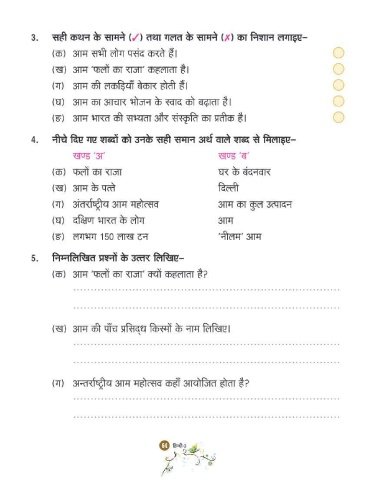 3. सही कथन के सामने (✓) तथा गलत के सामने (✗) का निशान लगाइए–
(क) आम सभी लोग पसंद करते हैं।
(ख) आम ‘फलों का राजा’ कहलाता है।
(ग) आम की लकड़ियाँ बेकार होती हैं।
(घ) आम का आचार भोजन के स्वाद को बढ़ाता है।
(ङ) आम भारत की सभ्यता और संस्कृति का प्रतीक है।
4. नीचे दिए गए शब्दों को उनके सही समान अर्थ वाले शब्द से मिलाइए–
खण्ड ‘अ’ खण्ड ‘ब’
(क) फलों का राजा घर के बंदनवार
(ख) आम के पत्ते दिल्ली
(ग) अंतर्राष्ट्रीय आम महोत्सव आम का कुल उत्पादन
(घ) दक्षिण भारत के लोग आम
(ङ) लगभग 150 लाख टन ‘नीलम’ आम
5. निम्नलिखित प्रश्नों के उत्तर लिखिए–
(क) आम ‘फलों का राजा’ क्यों कहलाता है?
(ख) आम की पाँच प्रसिद्ध किस्मों के नाम लिखिए।
(ग) अन्तर्राष्ट्रीय आम महोत्सव कहाँ आयोजित होता है?
64 हिन्दी-3